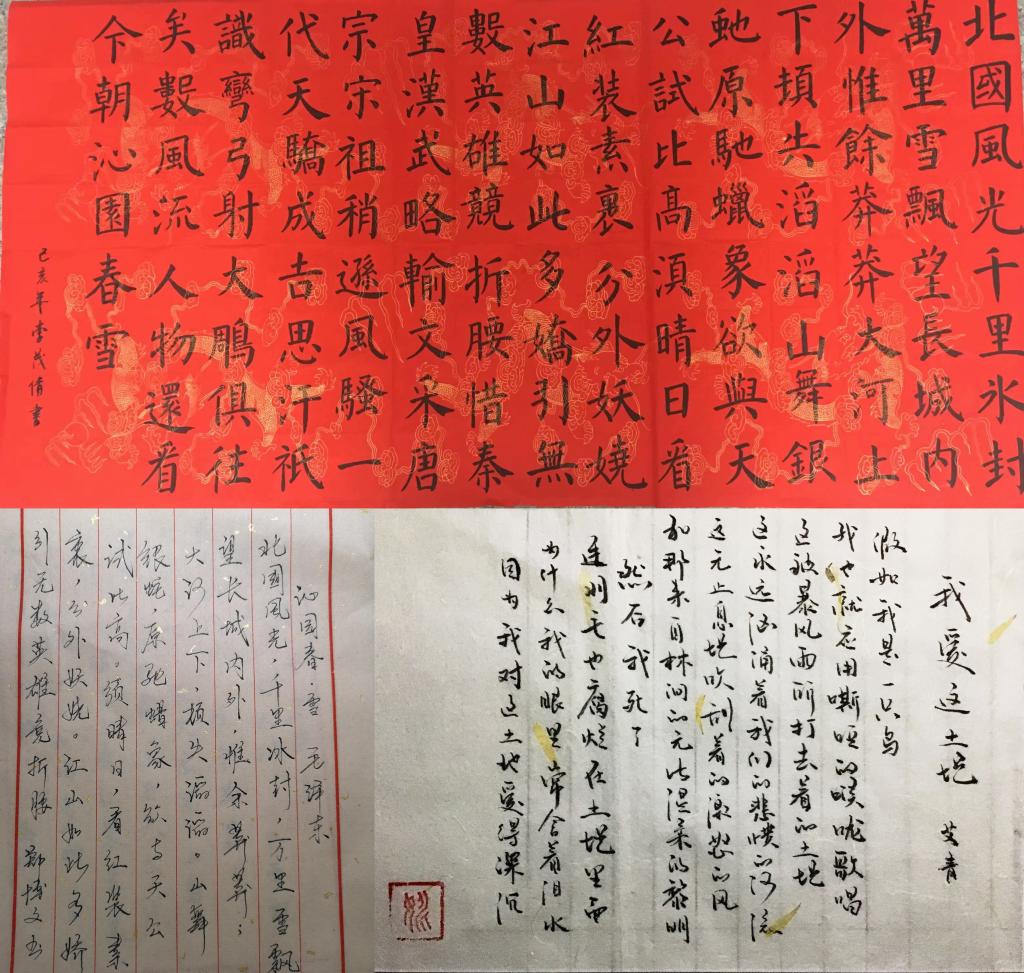 北國風光千里氷封
萬里雪飄望長城内
外惟餘莽莽大河上
下頓失滔滔山舞銀
虵原馳蠟象欲與天
公試比高須晴日看
紅装素裹分外妖嬈
江山如此多嬌引無
數英雄競折腰惜秦
皇漢武略輸文采唐
宗宋祖稍遜風騷一
代天驕成吉思汗祇
識彎弓射大鵰俱往
矣數風流人物還看
今朝沁園春雪
己亥年李茂倩書
沁园春·雪 毛泽东
北國風光,千里冰封,万里雪飘
望长城内外,惟余莽莽;
大河上下,顿失滔滔。山舞
银蛇,原驰蜡象,欲与天公
试比高。须晴日,看红装素
裹,分外妖娆。江山如此多娇
引无数英雄竞折腰 郑博文书
我爱这土地 艾青
假如我是一只鸟
我也就应用嘶哑的喉咙歌唱
这被暴风雨所打击着的土地
这永远汹涌着我们的悲愤的河流
这无止息地吹刮着的激怒的风
和那来自林间的无比温柔的黎明
然后我死了
连羽毛也腐烂在土地里面
为什么我的眼里常含着泪水
因为我对这土地爱得深沉